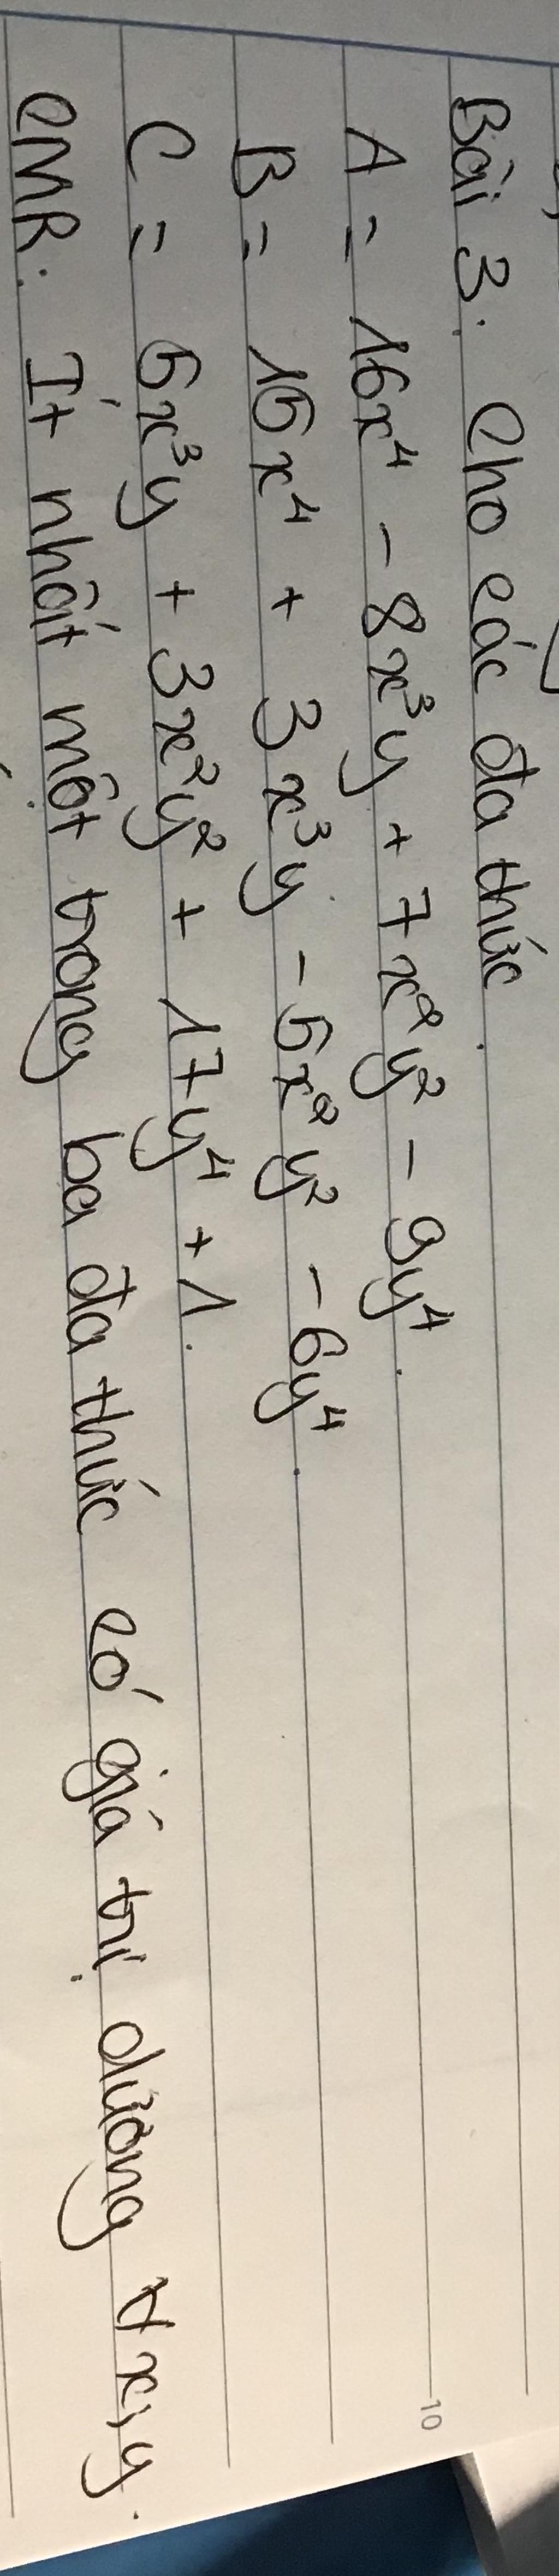 Bài 3: Cho các đa thức.
A = 16x⁴ - 8x³y + 7x²y² - 9y⁴.
B = 15x⁴ + 3x³y - 5x²y² - 6y⁴.
C = 5x³y + 3x²y² + 17y⁴ + 1.
CMR: Ít nhất một trong ba đa thức có giá trị dương ∀x,y.
10